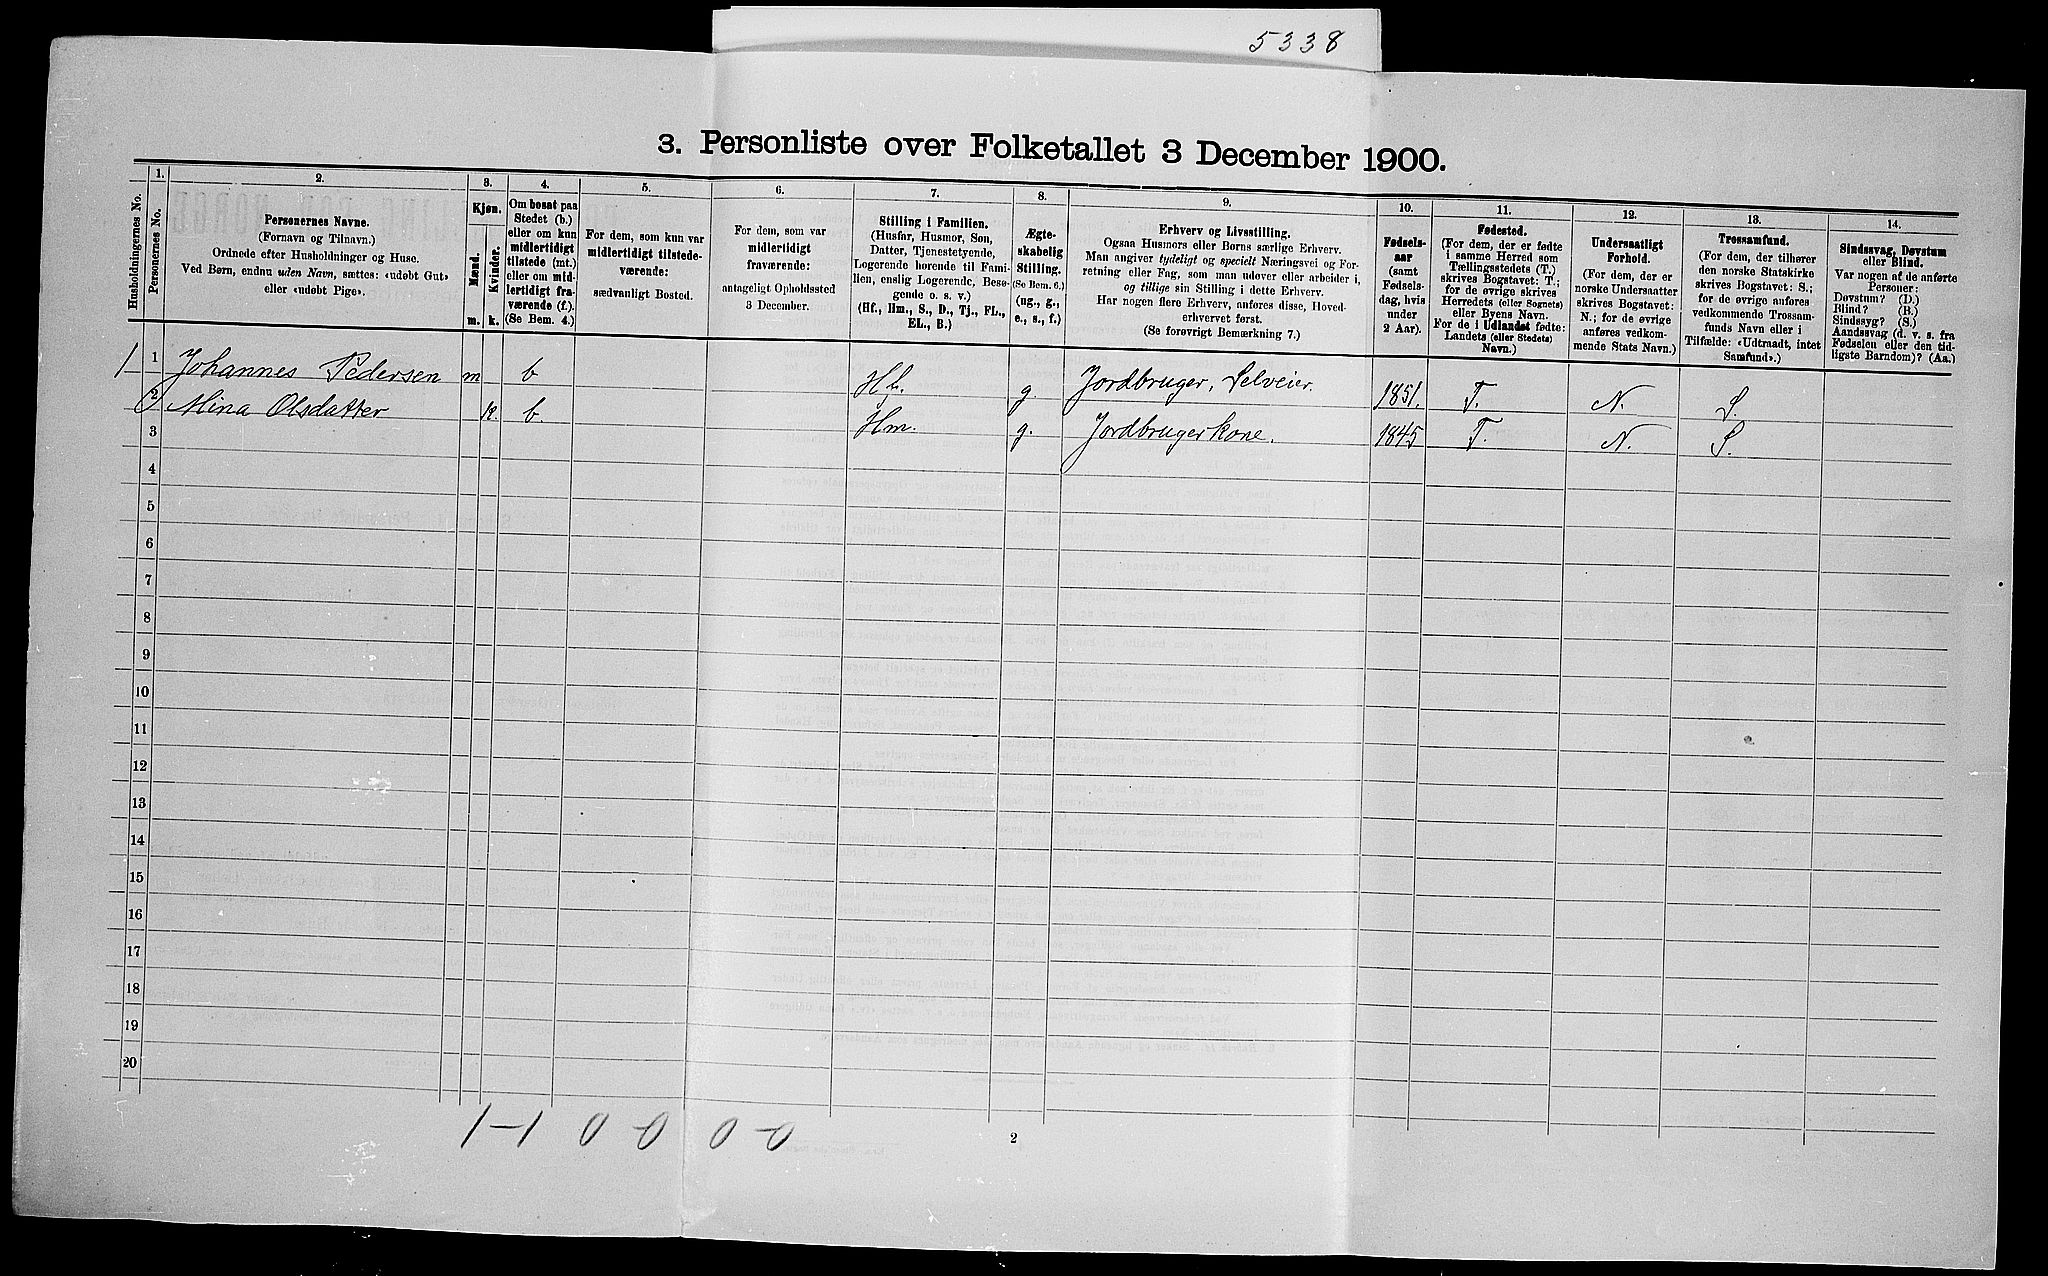 5338
3. Personliste over Folketallet 3 December 1900.
Husholdningernes No.
1.
Personernes No.
2.
Personernes Navne.
(Fornavn og Tilnavn.)
Ordnede efter Husholdninger og Huse.
Ved Børn, endnu uden Navn, sættes: «udøbt Gut»
eller «udøbt Pige».
3.
Kjøn.
Mænd.
Kvinder.
m. k.
4.
Om bosat paa
Stedet (b.)
eller om kun
midlertidigt
tilstede (mt.)
eller om mid-
lertidigt fra-
værende (f.).
(Se Bem. 4.)
5.
For dem, som kun var
midlertidigt tilstede-
værende:
sædvanligt Bosted.
6.
For dem, som var
midlertidigt
fraværende:
antageligt Opholdssted
3 December.
7.
Stilling i Familien.
(Husfar, Husmor, Søn,
Datter, Tjenestetyende,
Logerende hørende til Fami-
lien, enslig Logerende, Besø-
gende o. s. v.)
(Hf., Hm., S., D., Tj., FL.,
EL., B.)
8.
Ægte-
skabelig
Stilling.
(Se Bem. 6.)
(ug., g.,
e., s., f.)
9.
Erhverv og Livsstilling.
Ogsaa Husmors eller Børns særlige Erhverv.
Man angiver tydeligt og specielt Næringsvei og For-
retning eller Fag, som man udover eller arbeider i,
og tillige sin Stilling i dette Erhverv.
Har nogen flere Erhverv, anføres disse, Hoved-
erhvervet først.
(Se forøvrigt Bemærkning 7.)
10.
Fødsels-
aar
(samt
Fødsels-
dag, hvis
under
2 Aar).
11.
Fødested.
(For dem, der er fødte
i samme Herred som
Tællingsstedets (T.)
skrives Bogstavet: T.;
for de øvrige skrives
Herredets (eller Sognets)
eller Byens Navn.
For de i Udlandet fødte:
Landets (eller Stedets)
Navn.)
12.
Undersaatligt
Forhold.
(For dem, der er
norske Undersaatter
skrives Bogstavet:
N.; for de øvrige
anføres vedkom-
mende Stats Navn.)
13.
Trossamfund.
(For dem, der tilhører
den norske Statskirke
skrives Bogstavet: S.;
for de øvrige anføres
vedkommende Trossam-
funds Navn eller i
Tilfælde: «Udtraadt, intet
Samfund».)
14.
Sindssvag, Døvstum
eller Blind.
Var nogen af de anførte
Personer:
Døvstum? (D.)
Blind? (B.)
Sindssyg? (S.)
Aandssvag (d. v. s. fra
Fødselen eller den tid-
ligste Barndom)? (Aa.)
1 1 Johannes Pedersen m b Hf. g. Jordbruger, Selveier. 1851. T. N. S.
2 Mina Olsdatter k. b. Hm. g. Jordbrugerkone. 1845 T. N. S.
3
4
5
6
7
8
9
10
11
12
13
14
15
16
17
18
19
20
1-1 0-0 0-0
2